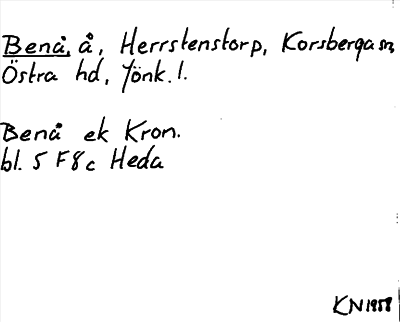 Benå, å, Herrstenstorp, Korsberga sn,
Östra hd, Jönk. l.
Benå ek Kron.
bl. 5 F 8 c Heda
KN 1958